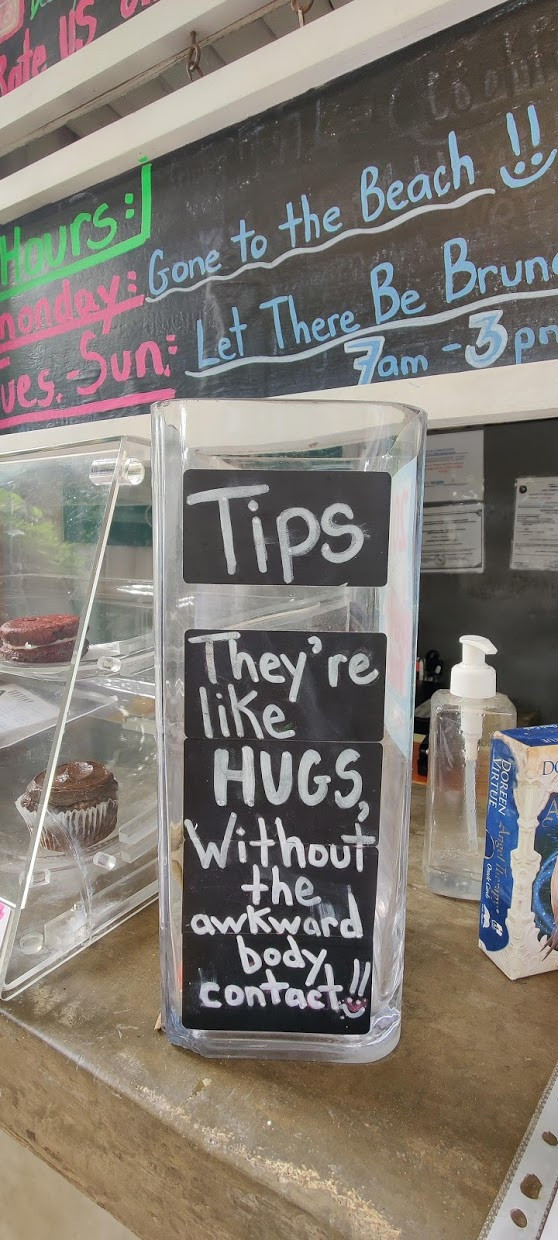 Rate US
Hours:
monday: Gone to the Beach !!
Tues.-Sun: Let There Be Brunch
7am - 3pm
Tips
They're
like
HUGS,
Without
the
awkward
body
contact!!
DOREEN
VIRTUE
Angel Therapy
Oracle Cards
DO